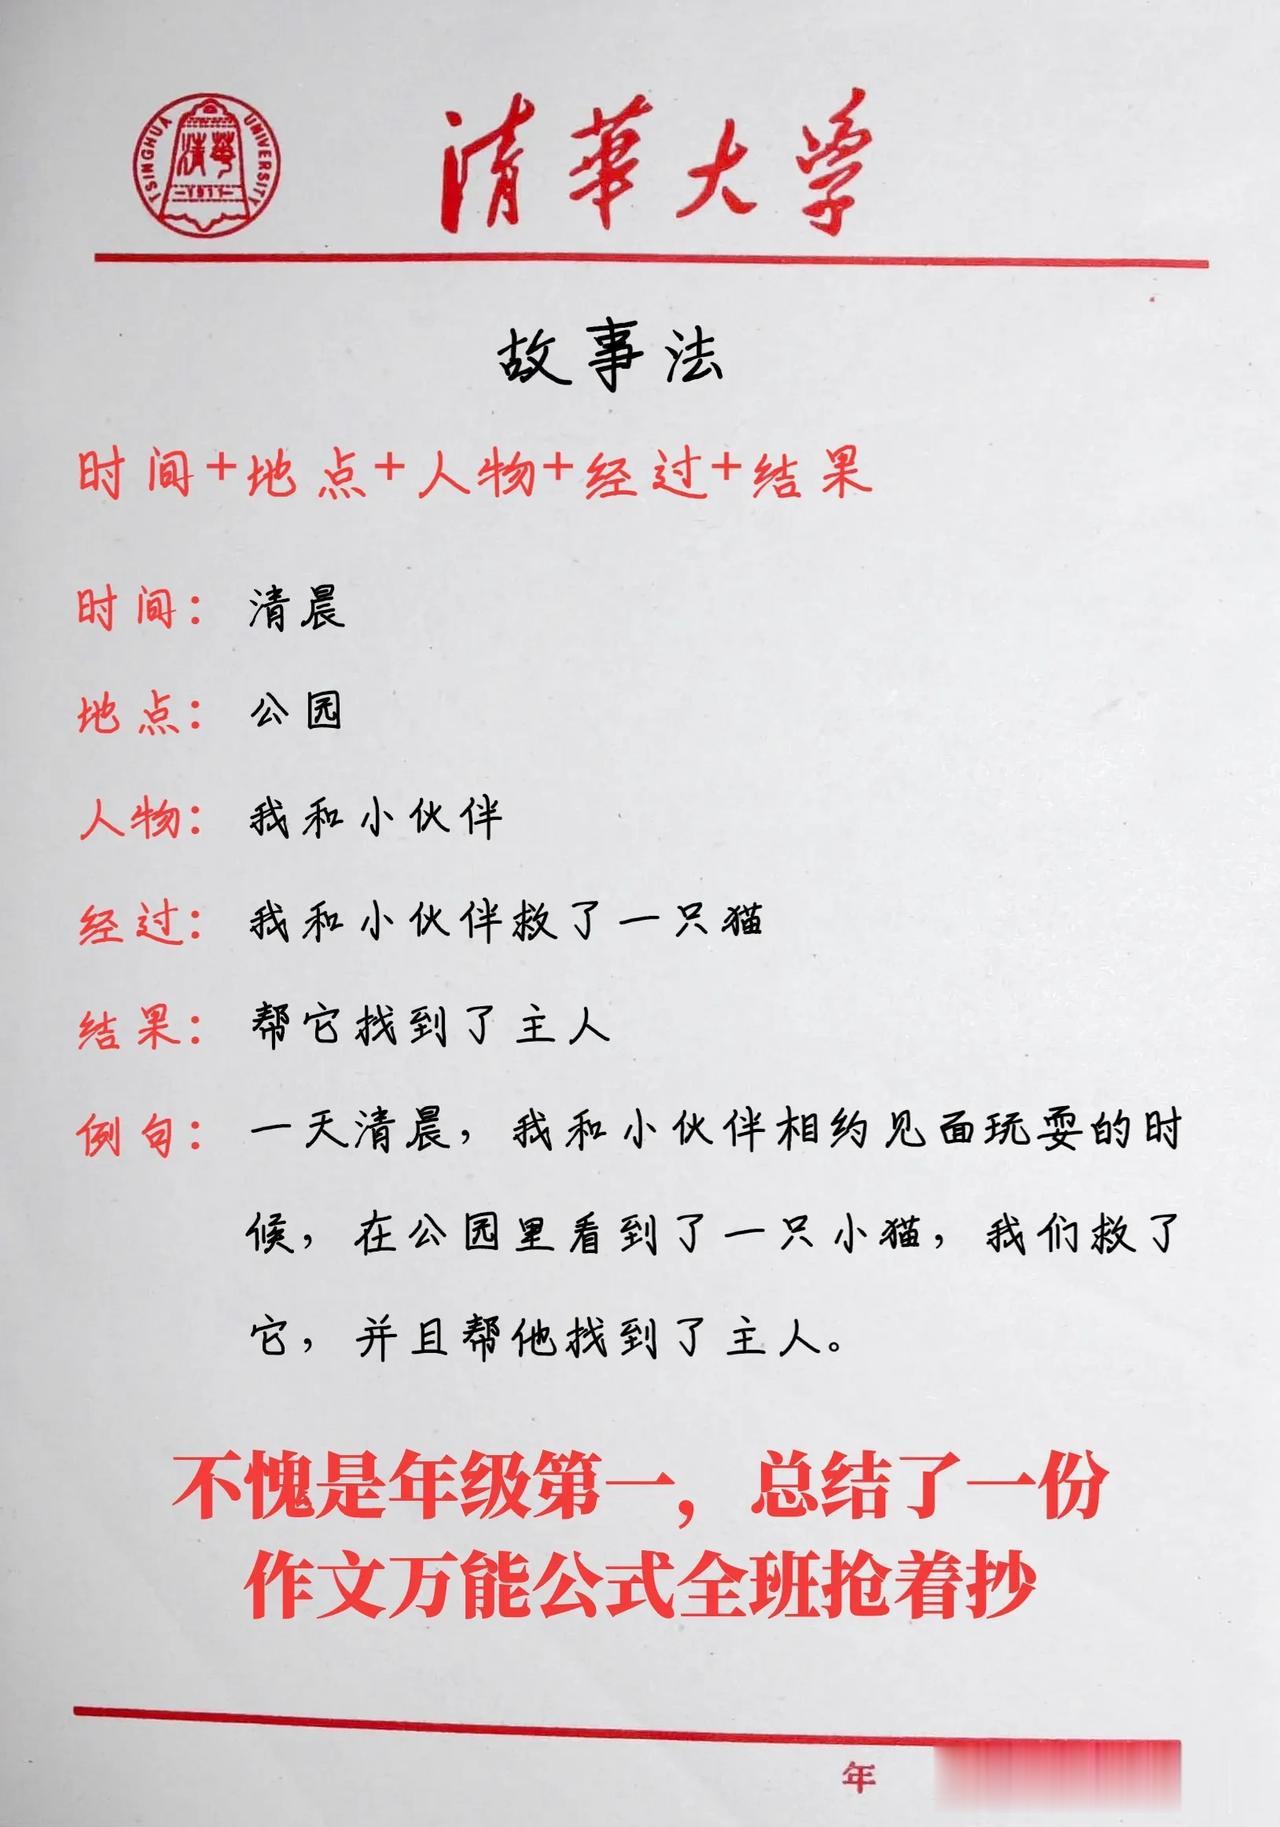 TSINGHUA UNIVERSITY
清華
1911
清華大学
故事法
时间+地点+人物+经过+结果
时间：清晨
地点：公园
人物：我和小伙伴
经过：我和小伙伴救了一只猫
结果：帮它找到了主人
例句：一天清晨，我和小伙伴相约见面玩耍的时
候，在公园里看到了一只小猫，我们救了
它，并且帮他找到了主人。
不愧是年级第一，总结了一份
作文万能公式全班抢着抄
年